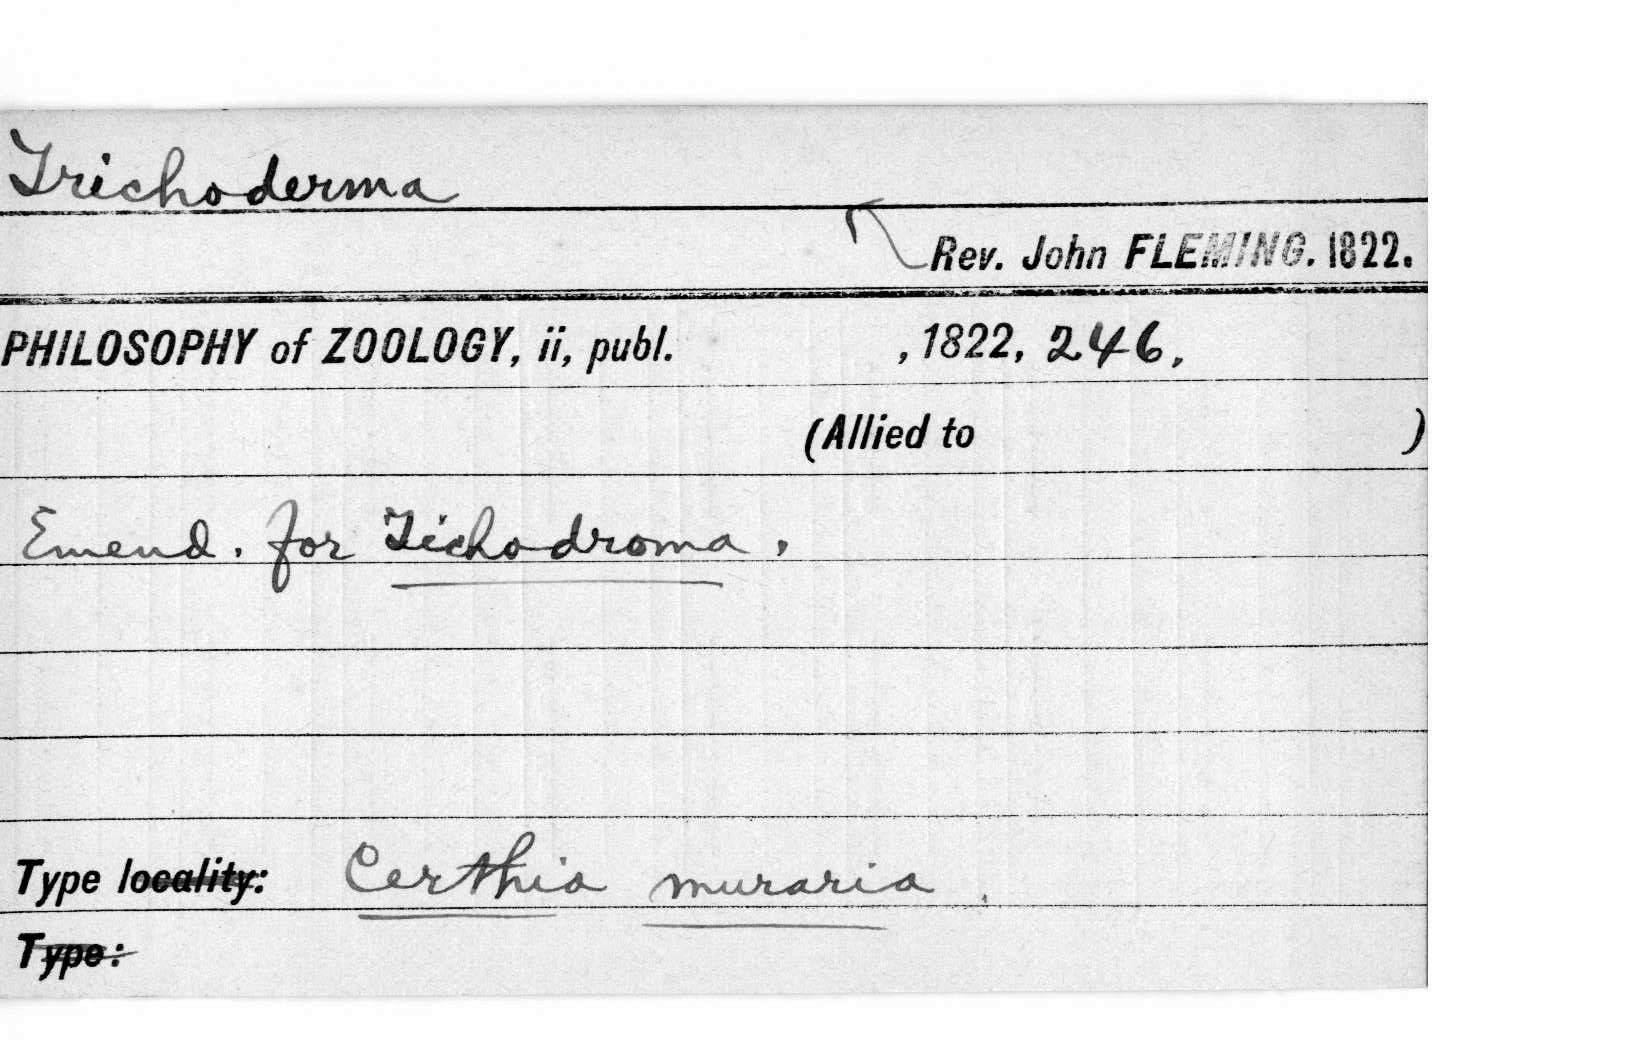 Trichoderma
Rev. John FLEMING. 1822.
PHILOSOPHY of ZOOLOGY, ii, publ. , 1822, 246,
(Allied to )
Emend. for Tichodroma.
Type locality: Certhia muraria.
Type: